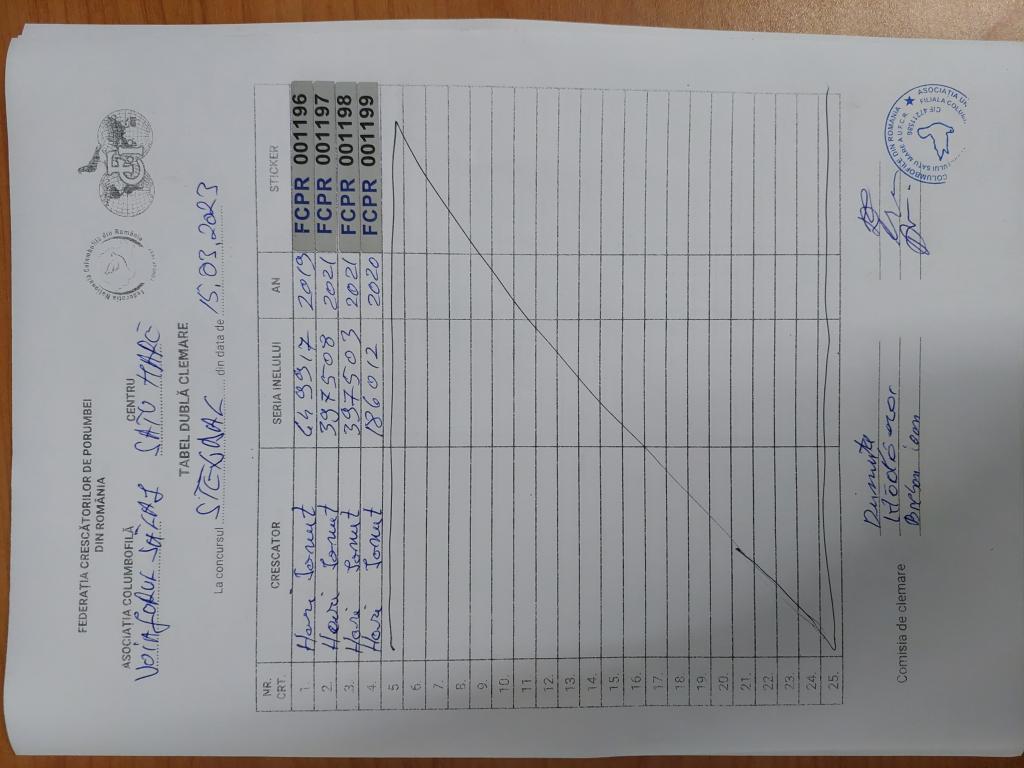 FEDERAȚIA CRESCĂTORILOR DE PORUMBEI
DIN ROMÂNIA
Federația Națională Columbofilă din România
ASOCIAȚIA COLUMBOFILĂ CENTRU
SATU MARE
TABEL DUBLĂ CLEMARE
La concursul din data de 15,03,2023
NR. CRT. CRESCATOR SERIA INELULUI AN STICKER
1. Hari Ionut 649917 2019 FCPR 001196
2. Hari Ionut 397508 2021 FCPR 001197
3. Hari Ionut 397503 2021 FCPR 001198
4. Hari Ionut 186012 2020 FCPR 001199
5
6.
7.
8.
9.
10.
11.
12.
13.
14.
15.
16.
17.
18.
19.
20.
21.
22.
23.
24.
25.
Comisia de clemare
ioan
ASOCIAȚIA
COLUMBOFILE DIN ROMÂNIA
FILIALA
SATU MARE A U.F.C.R.